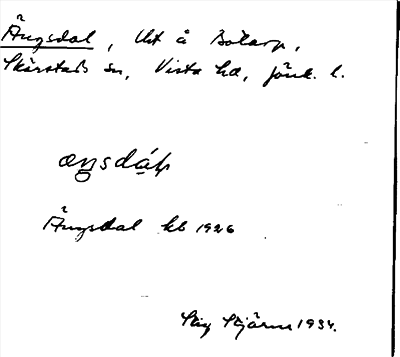 Ängsdal, lht å Botarp,
Skärstads sn, Vista hd, Jönk. l.
æŋsdál
Ängsdal kb 1926
Stig Stjärne 1934.